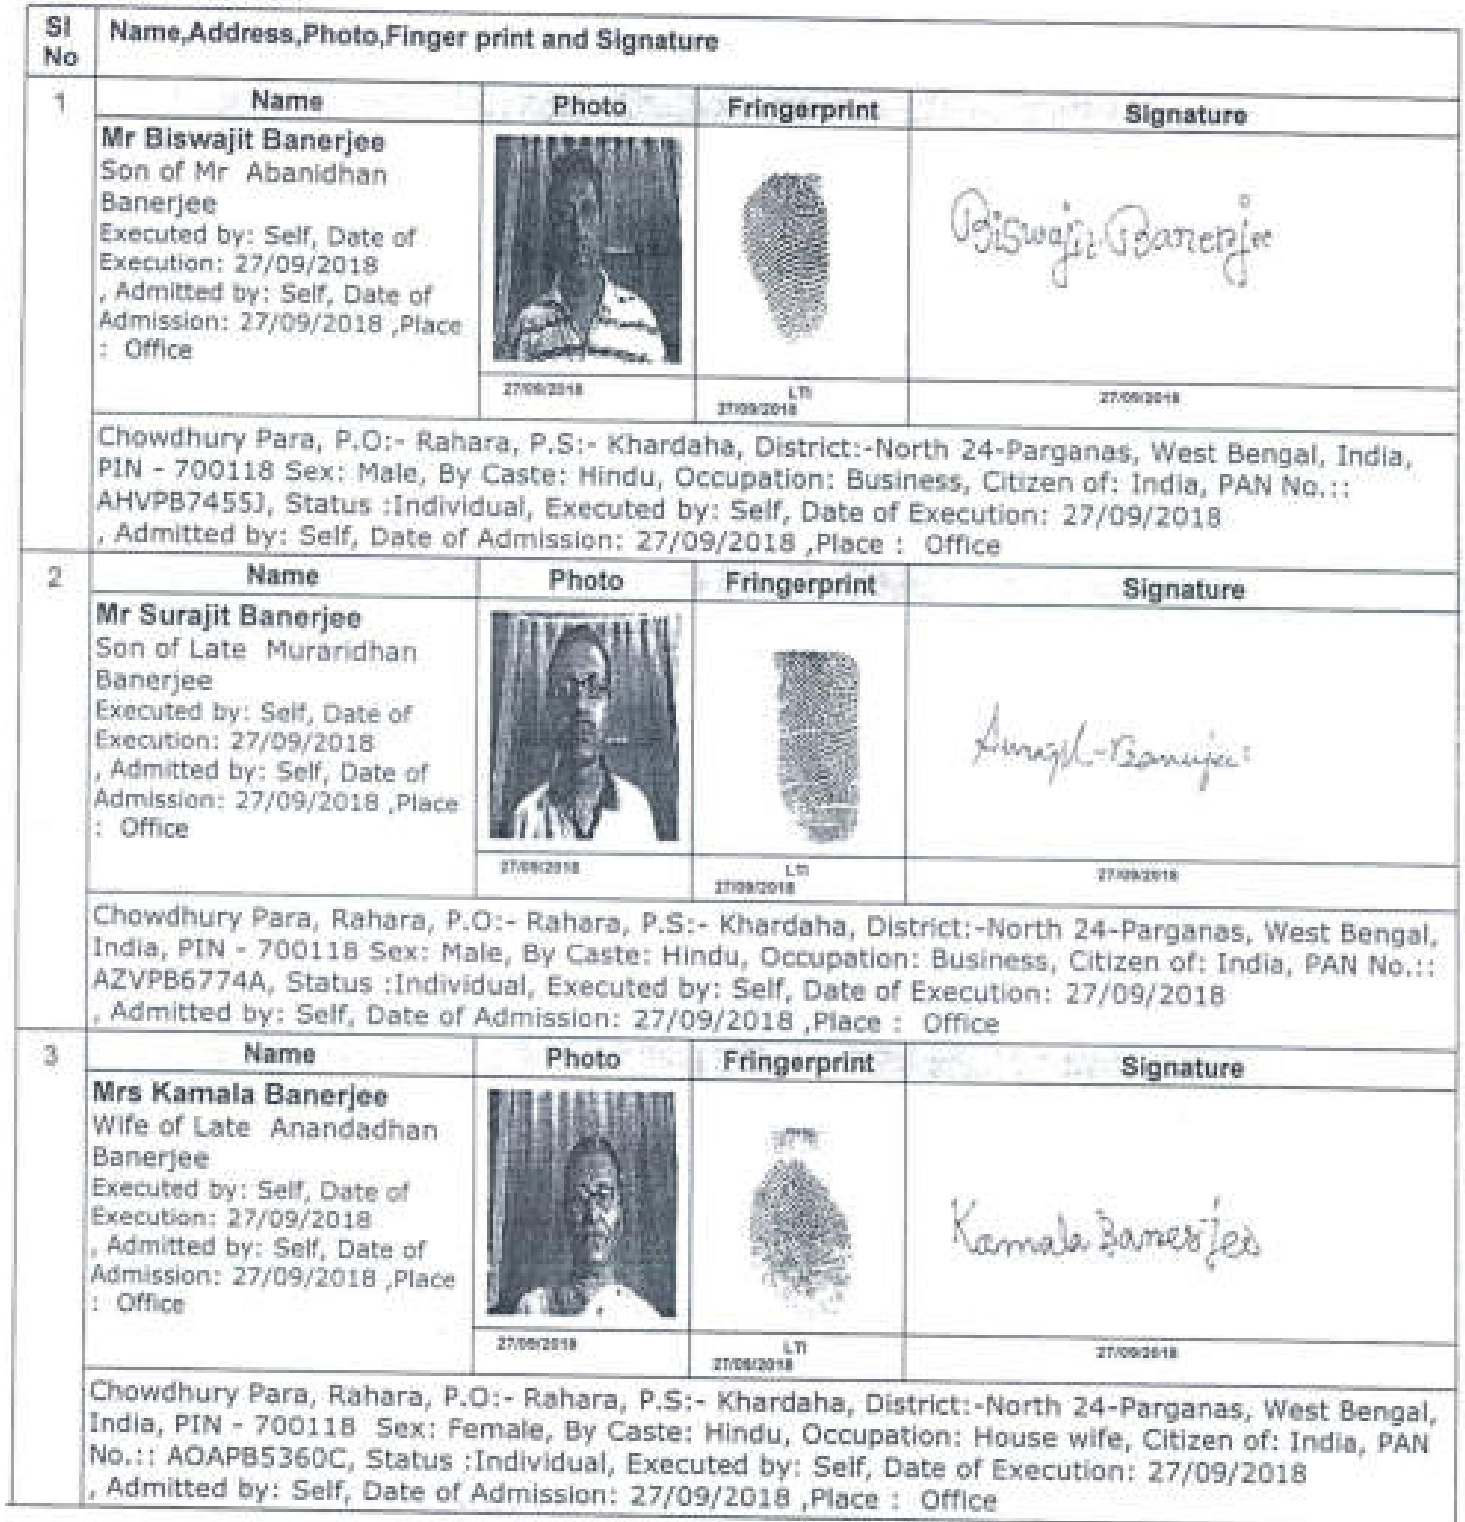 Sl No Name,Address,Photo,Finger print and Signature
1 Name Photo Fringerprint Signature
Mr Biswajit Banerjee
Son of Mr Abanidhan
Banerjee
Executed by: Self, Date of
Execution: 27/09/2018
, Admitted by: Self, Date of
Admission: 27/09/2018 ,Place
: Office
Biswajit Banerjee
27/09/2018 LTI 27/09/2018 27/09/2018
Chowdhury Para, P.O:- Rahara, P.S:- Khardaha, District:-North 24-Parganas, West Bengal, India,
PIN - 700118 Sex: Male, By Caste: Hindu, Occupation: Business, Citizen of: India, PAN No.::
AHVPB7455J, Status :Individual, Executed by: Self, Date of Execution: 27/09/2018
, Admitted by: Self, Date of Admission: 27/09/2018 ,Place : Office
2 Name Photo Fringerprint Signature
Mr Surajit Banerjee
Son of Late Muraridhan
Banerjee
Executed by: Self, Date of
Execution: 27/09/2018
, Admitted by: Self, Date of
Admission: 27/09/2018 ,Place
: Office
Surajit Banerjee
27/09/2018 LTI 27/09/2018 27/09/2018
Chowdhury Para, Rahara, P.O:- Rahara, P.S:- Khardaha, District:-North 24-Parganas, West Bengal,
India, PIN - 700118 Sex: Male, By Caste: Hindu, Occupation: Business, Citizen of: India, PAN No.::
AZVPB6774A, Status :Individual, Executed by: Self, Date of Execution: 27/09/2018
, Admitted by: Self, Date of Admission: 27/09/2018 ,Place : Office
3 Name Photo Fringerprint Signature
Mrs Kamala Banerjee
Wife of Late Anandadhan
Banerjee
Executed by: Self, Date of
Execution: 27/09/2018
, Admitted by: Self, Date of
Admission: 27/09/2018 ,Place
: Office
Kamala Banerjee
27/09/2018 LTI 27/09/2018 27/09/2018
Chowdhury Para, Rahara, P.O:- Rahara, P.S:- Khardaha, District:-North 24-Parganas, West Bengal,
India, PIN - 700118 Sex: Female, By Caste: Hindu, Occupation: House wife, Citizen of: India, PAN
No.:: AOAPB5360C, Status :Individual, Executed by: Self, Date of Execution: 27/09/2018
, Admitted by: Self, Date of Admission: 27/09/2018 ,Place : Office